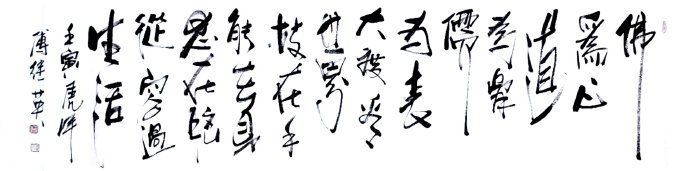 佛
爲心
道
為骨
儒
為表
大度看
世界
技在手
能在身
思在腦
從容過
生活
壬寅虎年